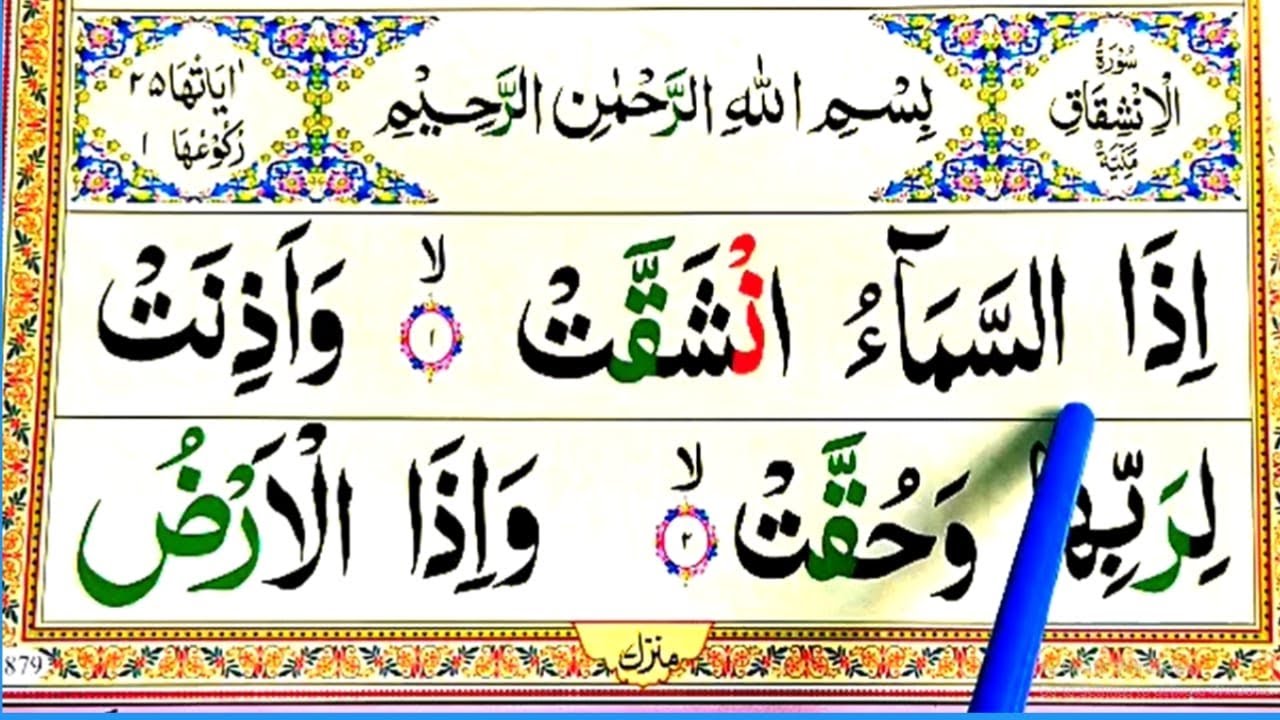 سُوْرَةُ الْاِنْشِقَاقِ مَكِّيَّةٌ
بِسْمِ اللّٰهِ الرَّحْمٰنِ الرَّحِيْمِ
اٰيَاتُهَا ۲۵
رُكُوْعُهَا ۱
اِذَا السَّمَآءُ انْشَقَّتْ ۙ ۱ وَاَذِنَتْ
لِرَبِّهَا وَحُقَّتْ ۙ ۲ وَاِذَا الْاَرْضُ
منزل
879